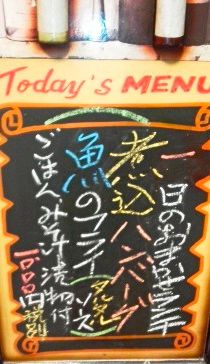 Today's MENU
一日のおまかせランチ
煮込ハンバーグ
魚のフライ タルタルソース
ごはんみそ汁漬物付
円税別